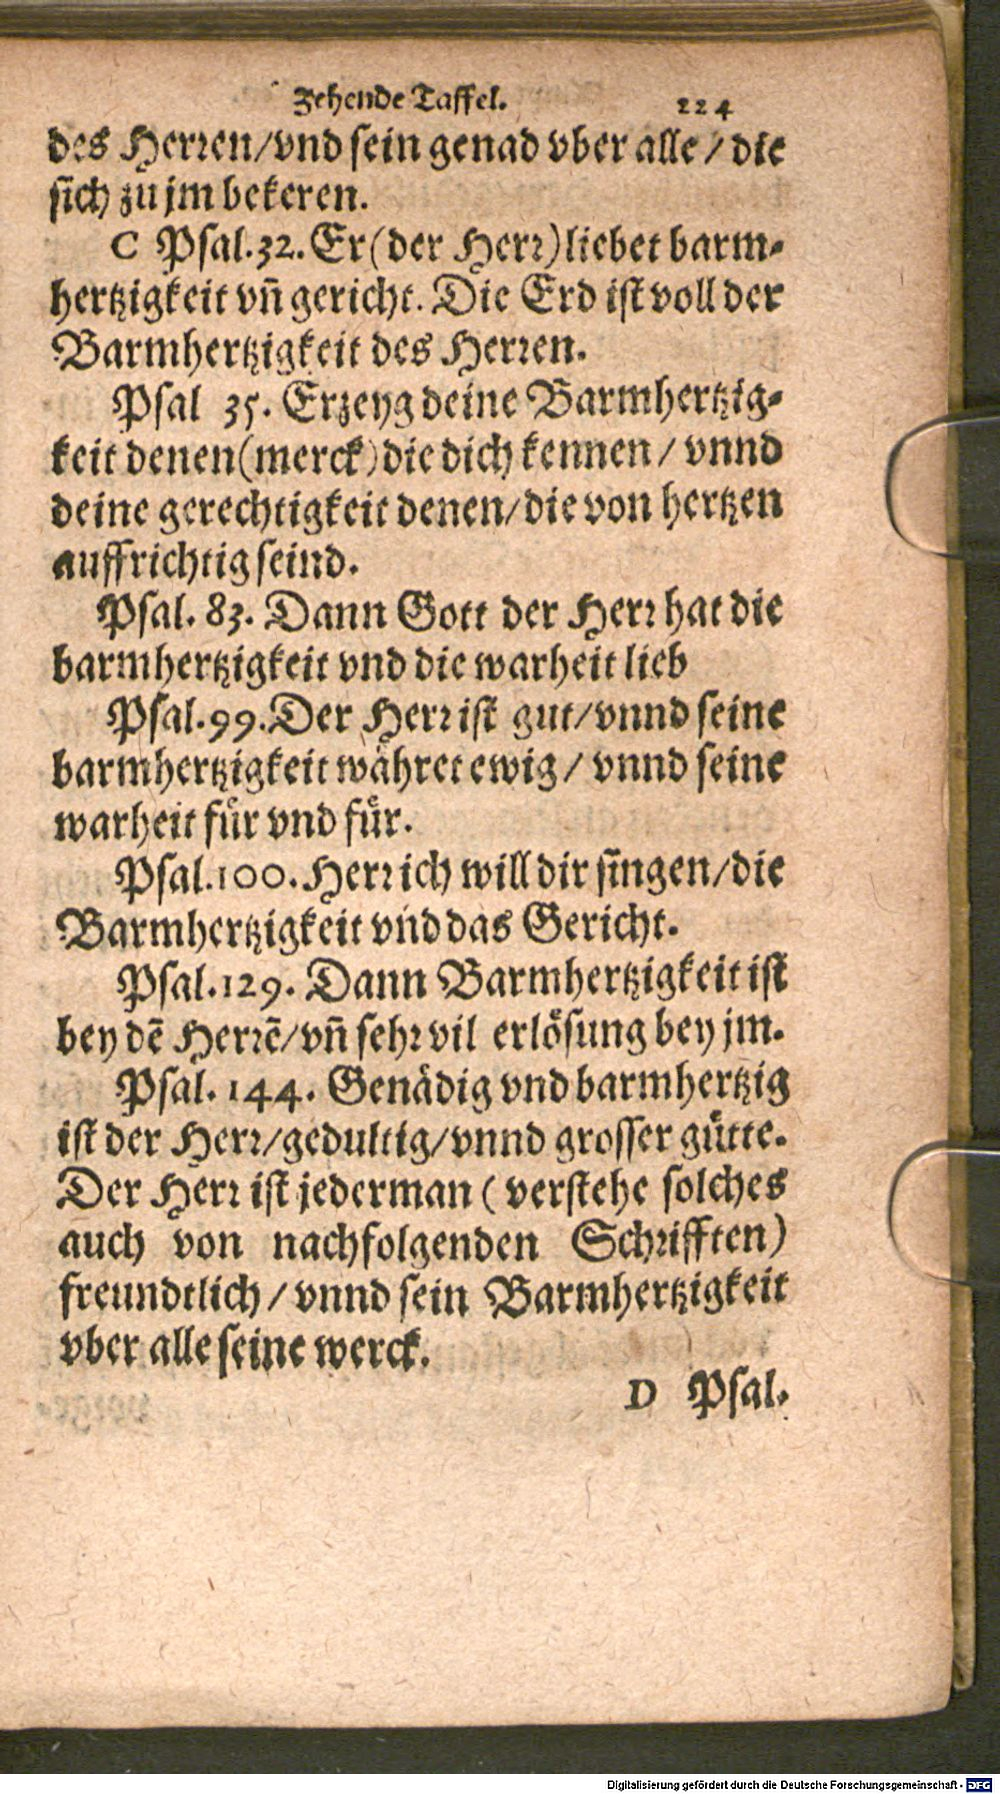 Zehende Taffel. 224
des Herren/vnd sein genad vber alle/die
sich zu jm bekeren.
C Psal.32. Er(der Herr)liebet barm-
hertzigkeit vñ gericht. Die Erd ist voll der
Barmhertzigkeit des Herren.
Psal 35. Erzeyg deine Barmhertzig-
keit denen(merck)die dich kennen/ vnnd
deine gerechtigkeit denen/die von hertzen
auffrichtig seind.
Psal. 83. Dann Gott der Herr hat die
barmhertzigkeit vnd die warheit lieb
Psal.99.Der Herr ist gut/vnnd seine
barmhertzigkeit währet ewig/ vnnd seine
warheit für vnd für.
Psal.100.Herr ich will dir singen/die
Barmhertzigkeit vnd das Gericht.
Psal.129. Dann Barmhertzigkeit ist
bey dē Herrē/vñ sehr vil erlösung bey jm.
Psal. 144. Genädig vnd barmhertzig
ist der Herr/gedultig/vnnd grosser gütte.
Der Herr ist jederman ( verstehe solches
auch von nachfolgenden Schrifften)
freundtlich/ vnnd sein Barmhertzigkeit
vber alle seine werck.
D Psal.
Digitalisierung gefördert durch die Deutsche Forschungsgemeinschaft - DFG